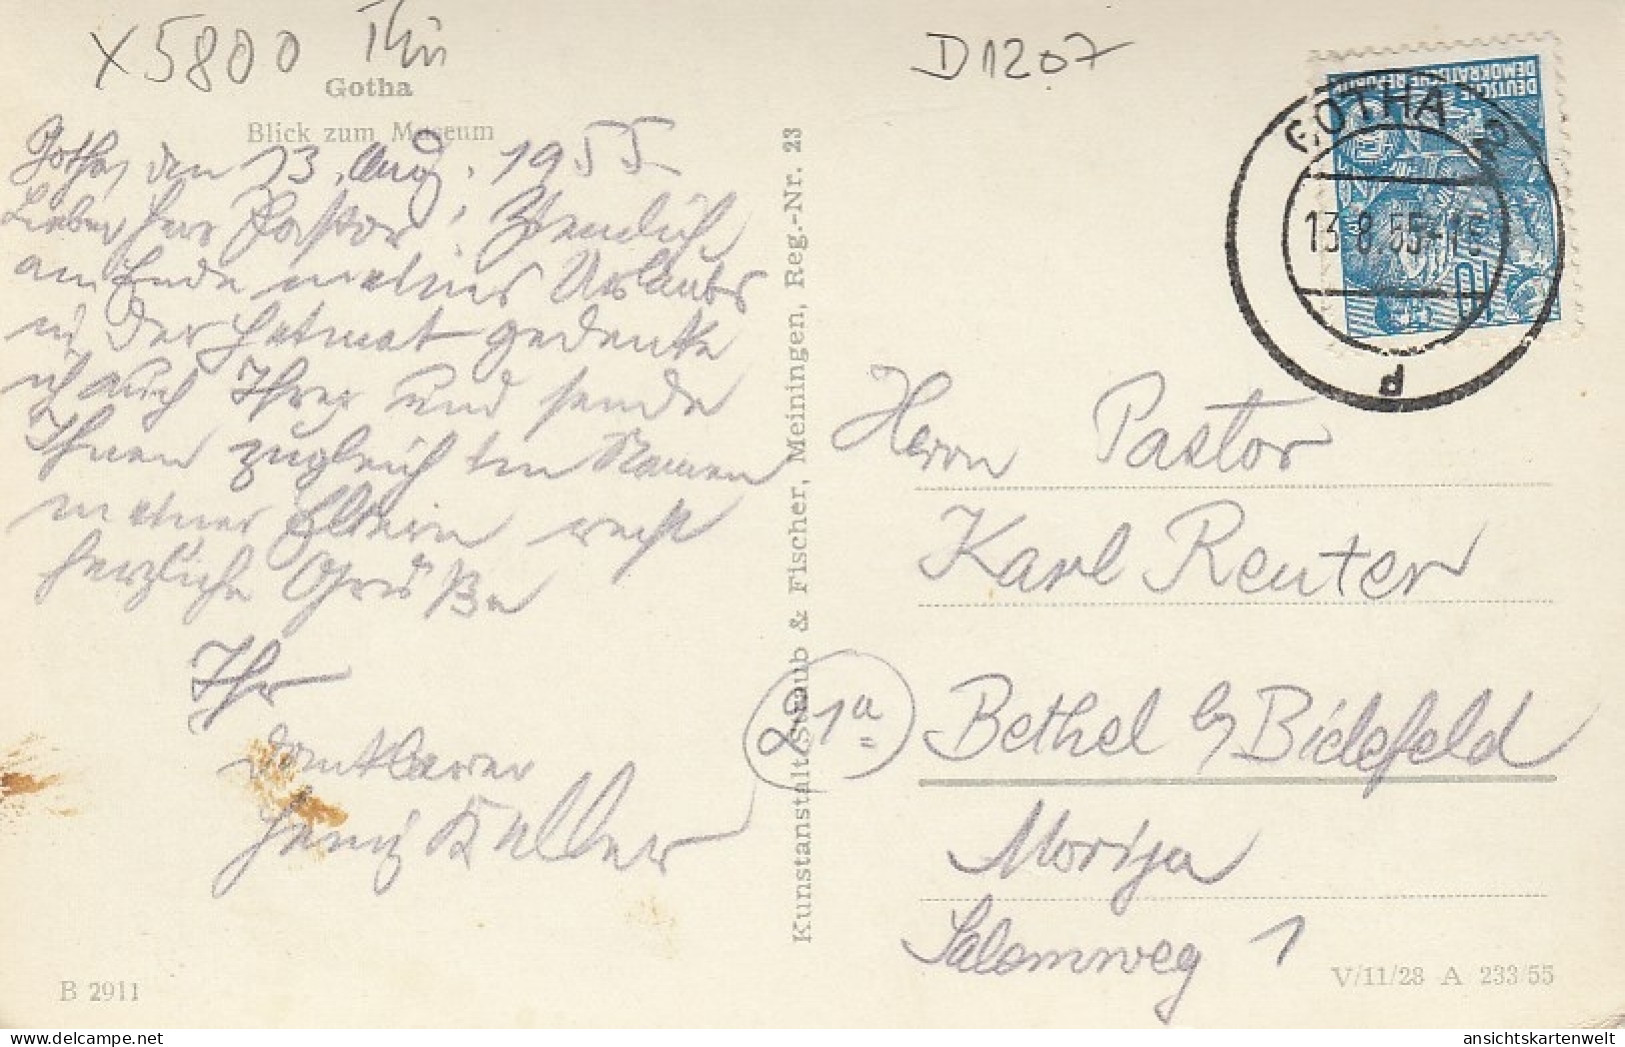 X5800 Thür
D1207
Gotha
Blick zum Museum
Gotha, den 13. Aug. 1955
Lieber Herr Pastor! Ziemlich
am Ende meines Urlaubs
in der Heimat gedenke
ich auch Ihrer und sende
Ihnen zugleich im Namen
meiner Eltern recht
herzliche Grüße
Ihr
dankbarer
Keller
Kunstanstalt Straub & Fischer, Meiningen, Reg.-Nr. 23
DEUTSCHE
DEMOKRATISCHE REPUBLIK
GOTHA 2
13.8.55-18
d
10
Herrn Pastor
Karl Reuter
21a
Bethel b/ Bielefeld
Morija
Salemweg 1
B 2911
V/11/28 A 233/55
ansichtskartenwelt